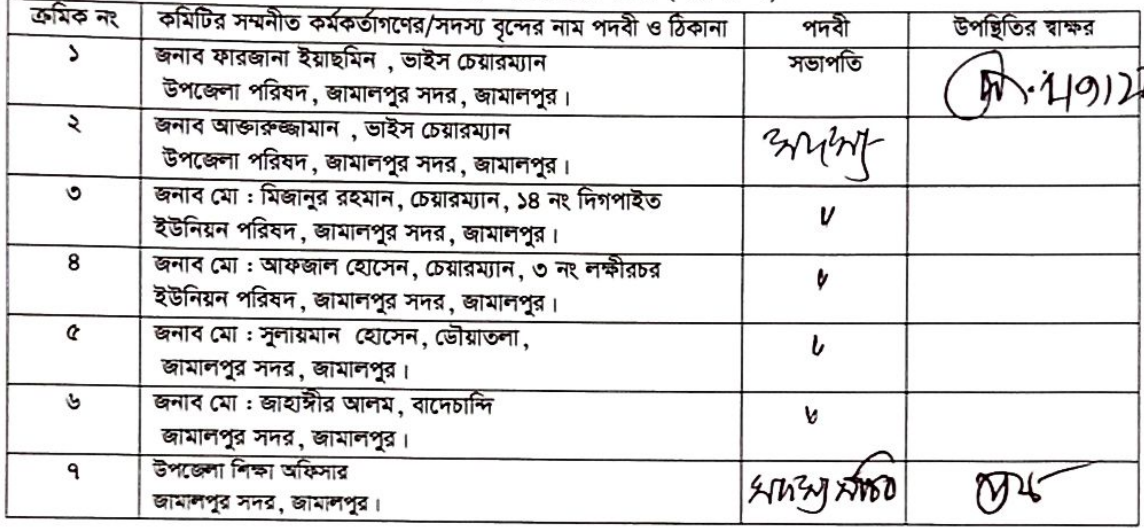 ক্রমিক নং কমিটির সম্মনীত কর্মকর্তাগণের/সদস্য বৃন্দের নাম পদবী ও ঠিকানা পদবী উপস্থিতির স্বাক্ষর
১ জনাব ফারজানা ইয়াছমিন , ভাইস চেয়ারম্যান সভাপতি
উপজেলা পরিষদ , জামালপুর সদর , জামালপুর ।
২ জনাব আক্তারুজ্জামান , ভাইস চেয়ারম্যান সদস্য
উপজেলা পরিষদ , জামালপুর সদর , জামালপুর ।
৩ জনাব মো : মিজানুর রহমান , চেয়ারম্যান , ১৪ নং দিগপাইত
ইউনিয়ন পরিষদ , জামালপুর সদর , জামালপুর ।
৪ জনাব মো : আফজাল হোসেন , চেয়ারম্যান , ৩ নং লক্ষীরচর
ইউনিয়ন পরিষদ , জামালপুর সদর , জামালপুর ।
৫ জনাব মো : সুলায়মান হোসেন , ডৌয়াতলা ,
জামালপুর সদর , জামালপুর ।
৬ জনাব মো : জাহাঙ্গীর আলম , বাদেচান্দি
জামালপুর সদর , জামালপুর ।
৭ উপজেলা শিক্ষা অফিসার সদস্য সচিব
জামালপুর সদর , জামালপুর ।